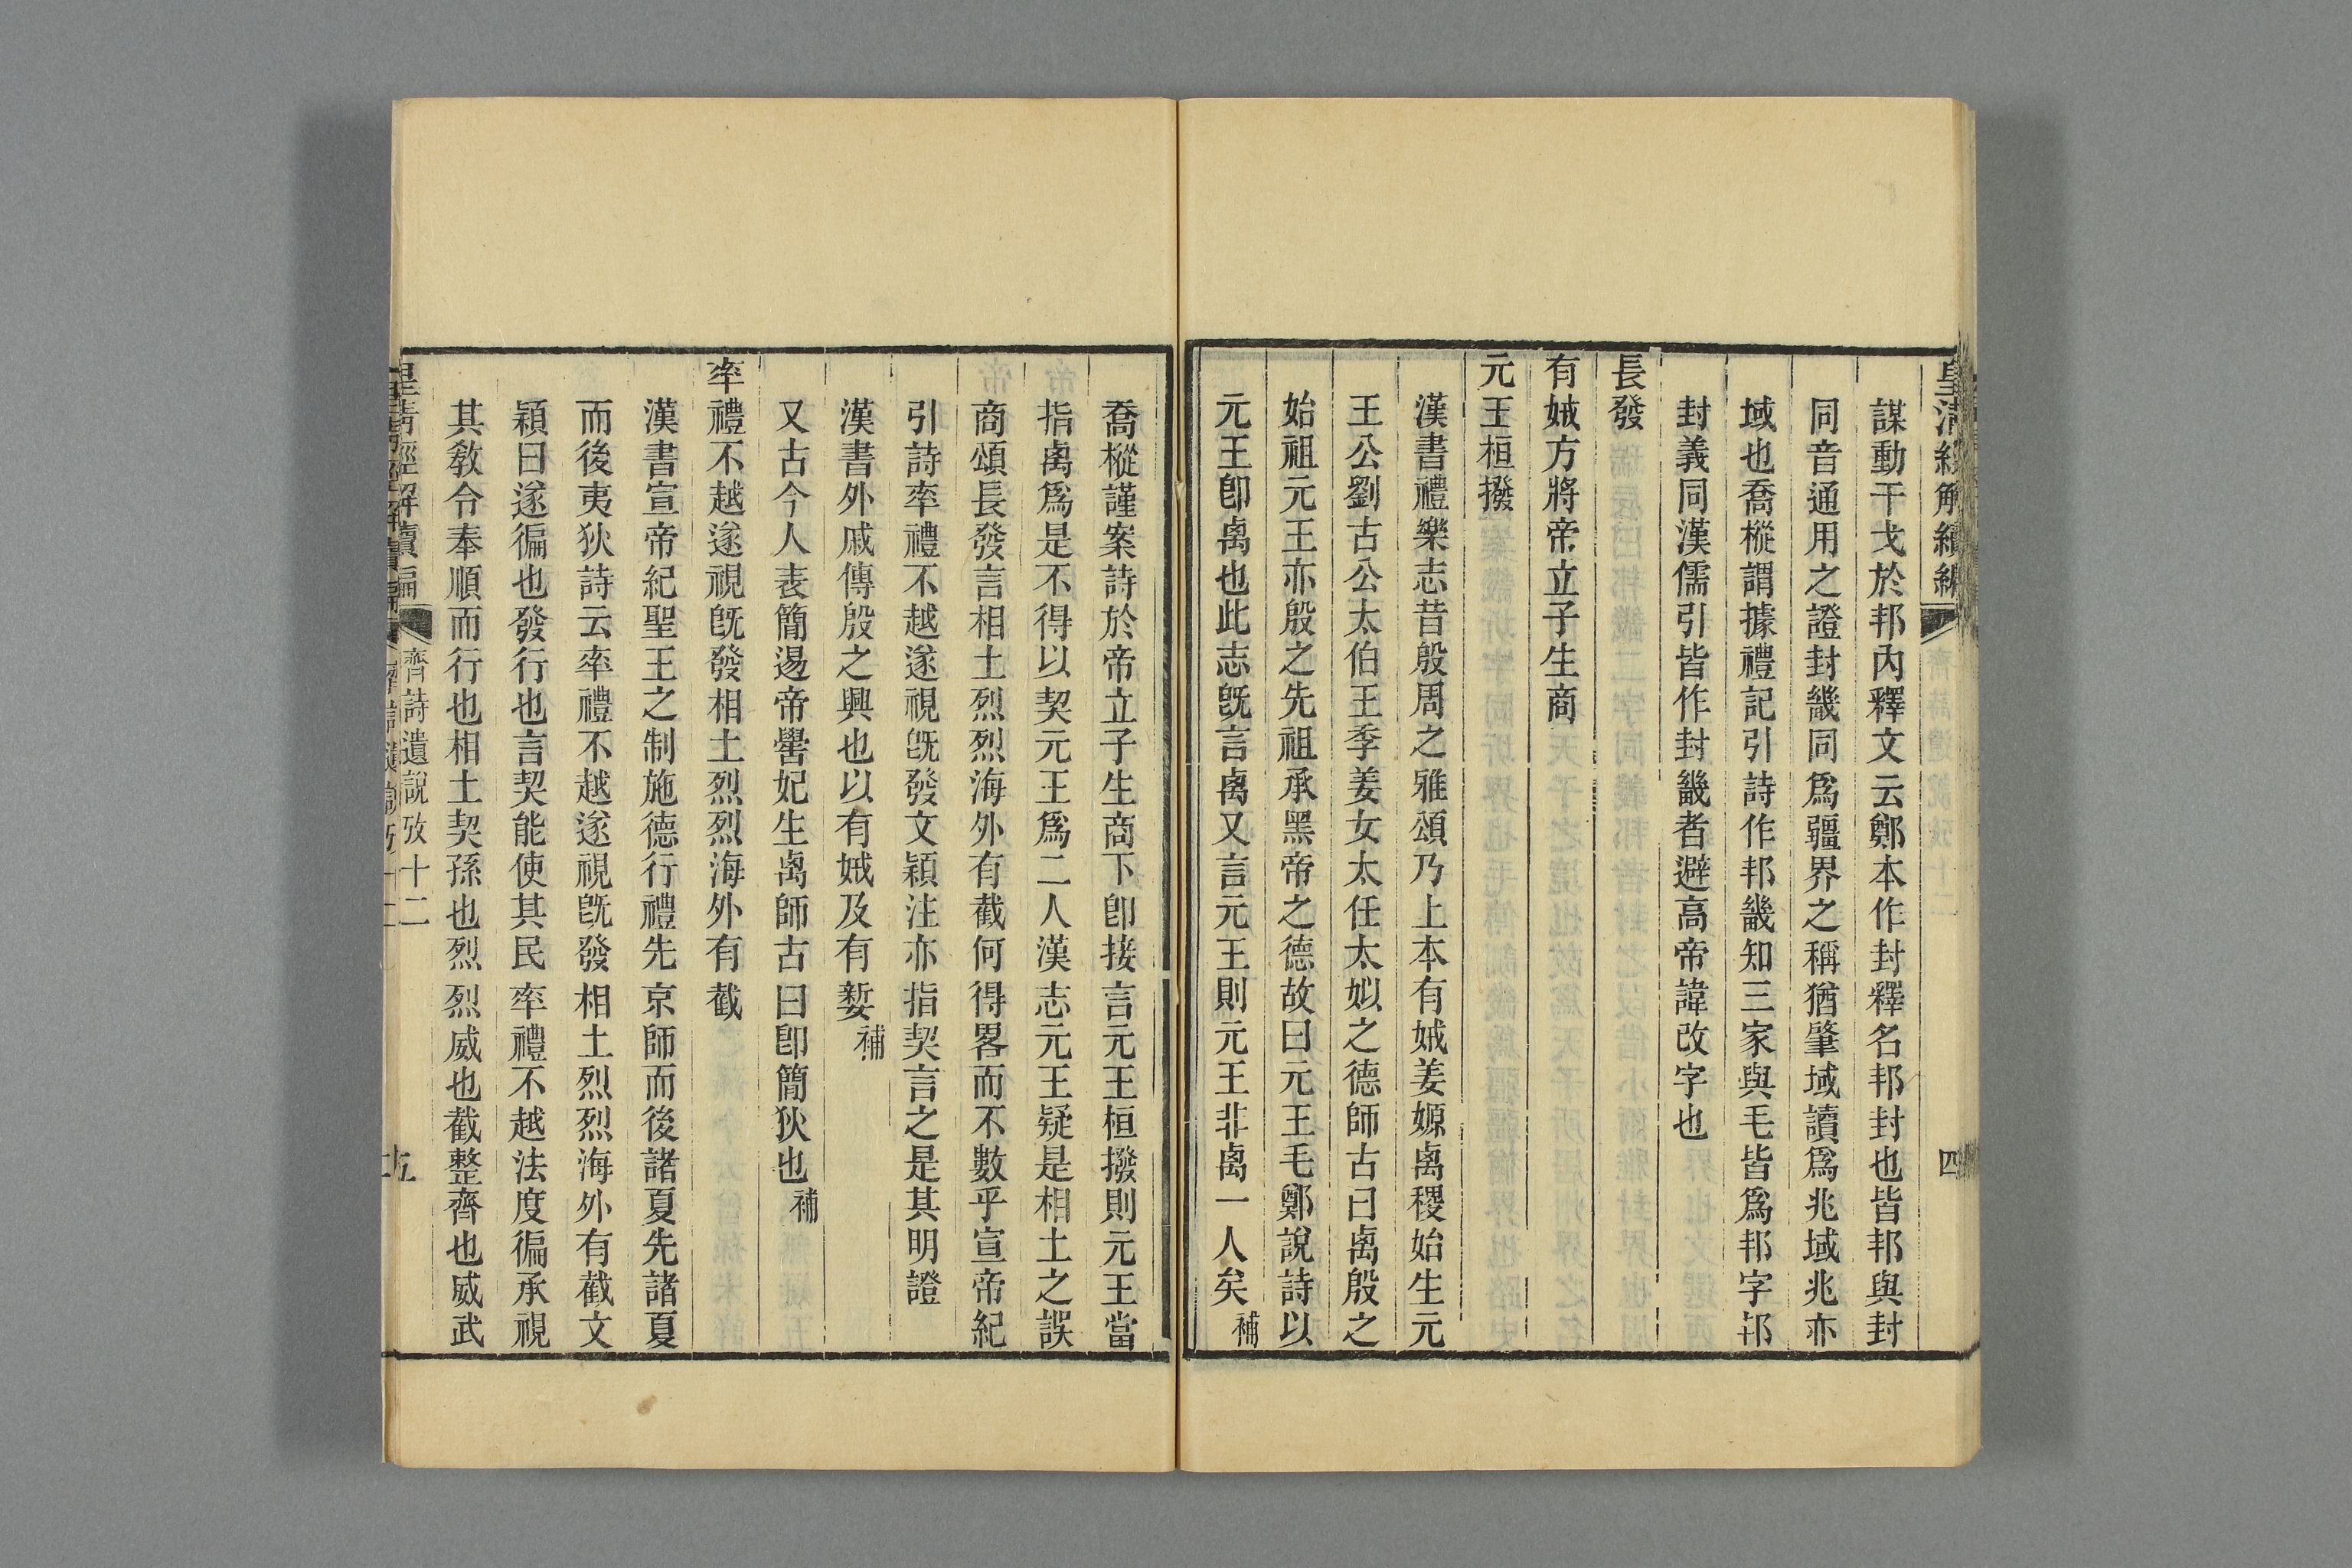 皇清經解續編
四
謀動干戈於邦內釋文云鄭本作封釋名邦封也皆邦與封
同音通用之證封畿同爲疆界之稱猶肇域讀爲兆域兆亦
域也喬樅謂據禮記引詩作邦畿知三家與毛皆爲邦字邦
封義同漢儒引皆作封畿者避高帝諱改字也
長發
有娀方將帝立子生商
元王桓撥
漢書禮樂志昔殷周之雅頌乃上本有娀姜嫄卨稷始生元
王公劉古公太伯王季姜女太任太姒之德師古曰卨殷之
始祖元王亦殷之先祖承黑帝之德故曰元王毛鄭說詩以
元王卽卨也此志旣言卨又言元王則元王非卨一人矣補
喬樅謹案詩於帝立子生商下卽接言元王桓撥則元王當
指卨爲是不得以契元王爲二人漢志元王疑是相土之誤
商頌長發言相土烈烈海外有截何得畧而不數乎宣帝紀
引詩率禮不越遂視旣發文穎注亦指契言之是其明證
漢書外戚傳殷之興也以有娀及有㜪補
又古今人表簡逷帝嚳妃生卨師古曰卽簡狄也補
率禮不越遂視旣發相土烈烈海外有截
漢書宣帝紀聖王之制施德行禮先京師而後諸夏先諸夏
而後夷狄詩云率禮不越遂視旣發相土烈烈海外有截文
穎曰遂徧也發行也言契能使其民率禮不越法度徧承視
其敎令奉順而行也相土契孫也烈烈威也截整齊也威武
皇淸經解續編
齊詩遺說攷十二
五